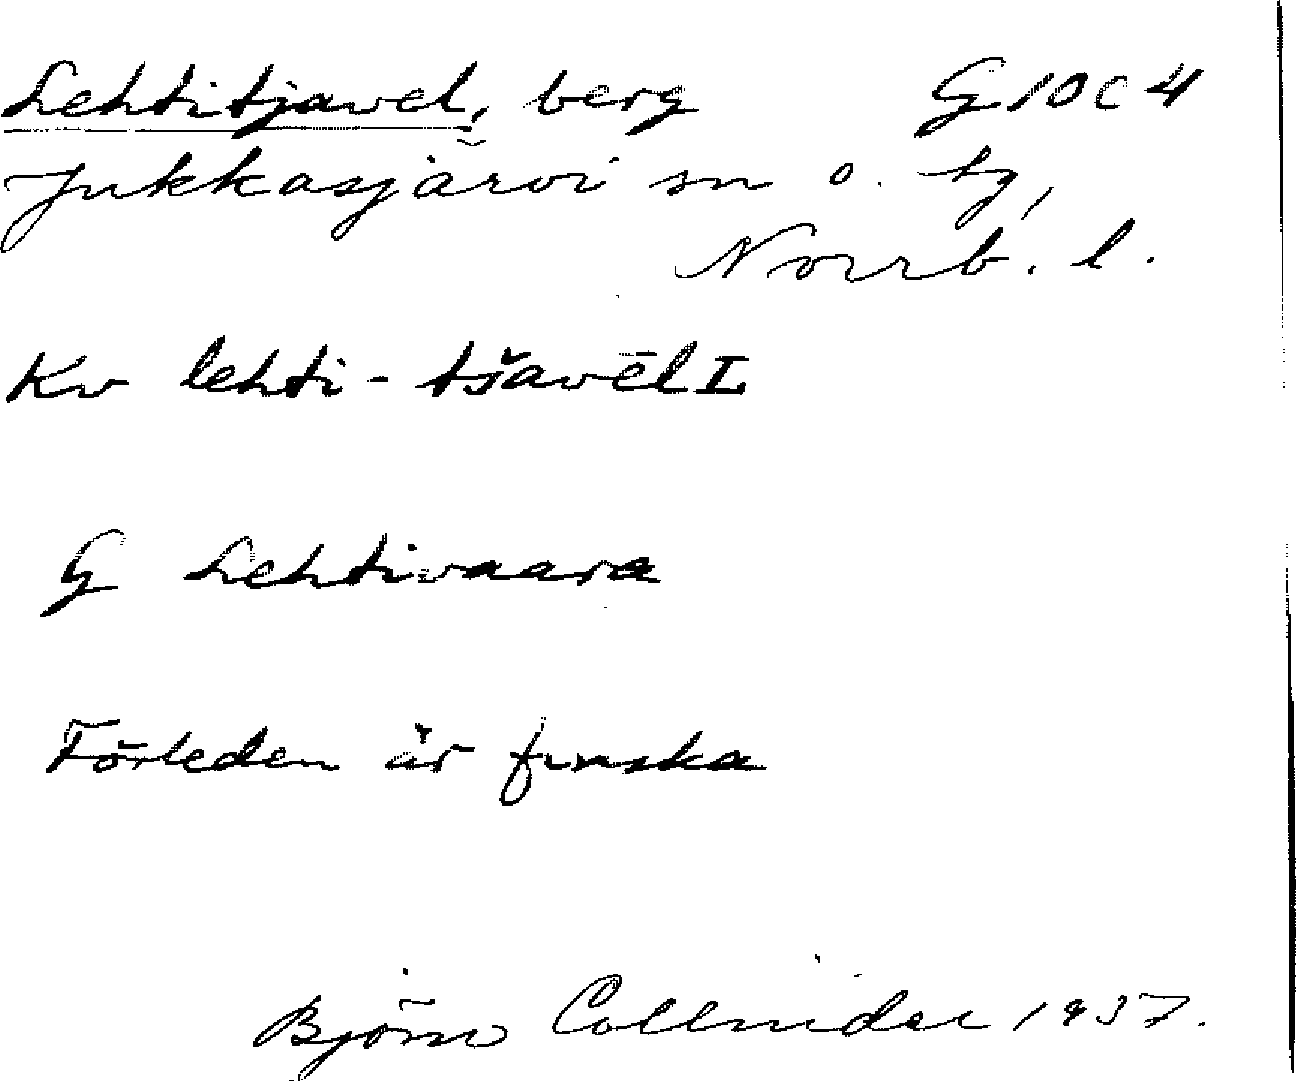 Lehtitjavel, berg G 10 c 4
Jukkasjärvi sn o. tg,
Norrb. l.
Kv lehti-tšavēlI
G Lehtivaara
Förleden är finska
Björn Collinder 1937.